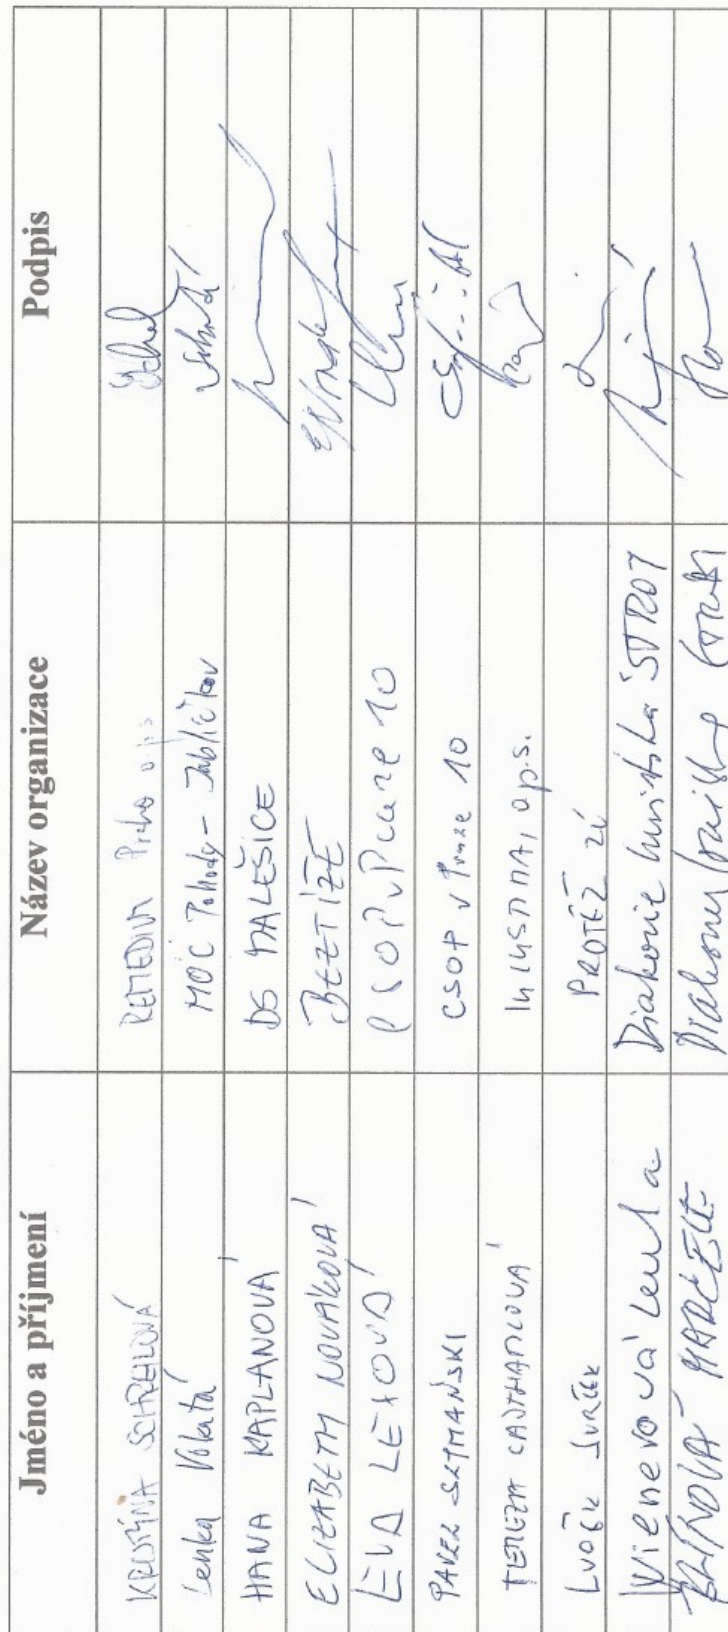 Jméno a příjmení Název organizace Podpis
KRISTÝNA SCHREILOVÁ REMEDIUM Praha o.p.s.
Lenka Vokatá MOC Pohody - Jablíčkov
HANA KAPLANOVÁ DS MALEŠICE
ELIZABETH NOVÁKOVÁ BEZTÍŽE
EVA LEXOVÁ CSOP v Praze 10
PAVEL SZYMAŃSKI CSOP v Praze 10
TEREZA o.p.s.
LUDĚK JURÁČEK PROTĚŽ
Wienerová Lenka Diakonie husitská
MARCELE